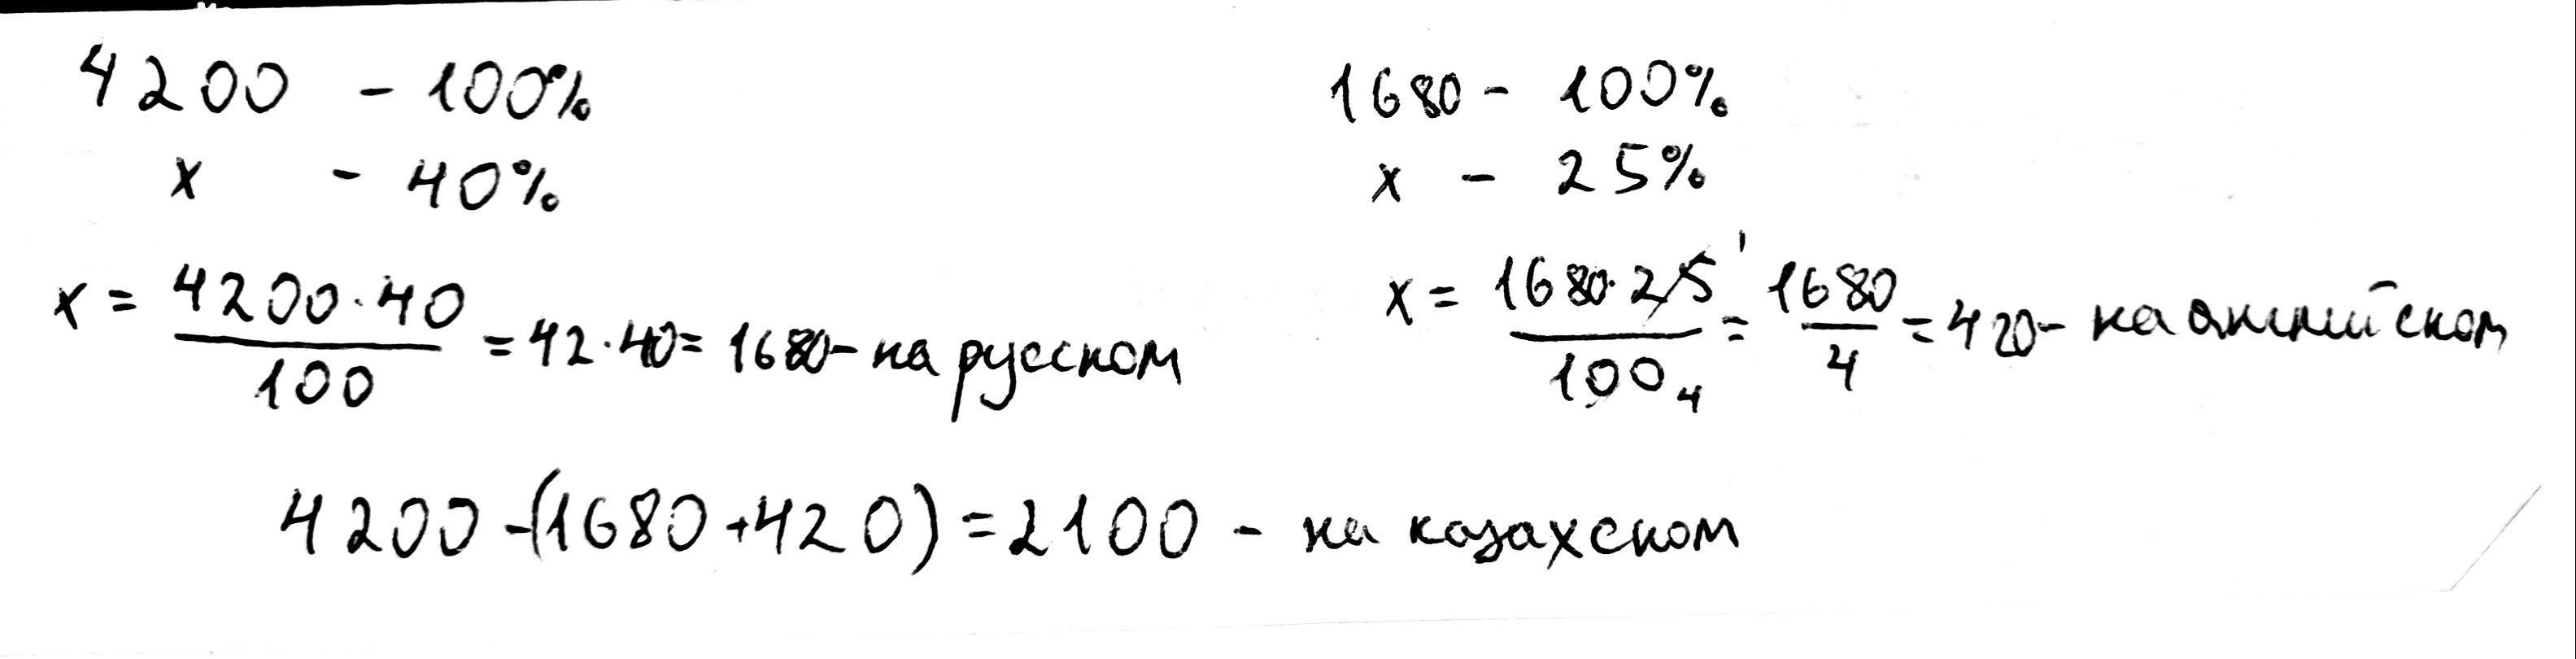 4200 - 100%
x - 40%
x = 4200·40 / 100 = 42·40 = 1680 - на русском
1680 - 100%
x - 25%
x = 1680·25 1 / 100 4 = 1680 / 4 = 420 - на английском
4200 - (1680 + 420) = 2100 - на казахском